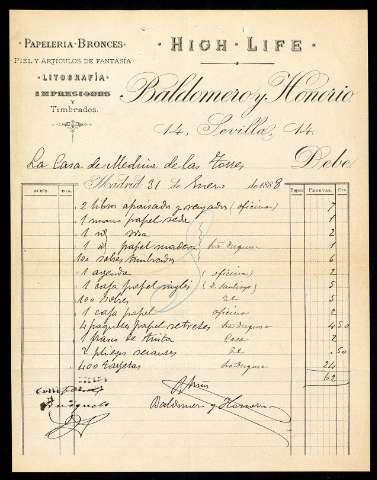 · PAPELERIA · BRONCES ·
PIEL Y ARTICULOS DE FANTASIA
· LITOGRAFÍA ·
IMPRESIONES
Y
Timbrados.
· HIGH · LIFE ·
Baldomero y Honorio
14, Sevilla, 14.
La Casa de Medina de las Torres Debe
Madrid 31 de Enero de 1888
Pesetas
2 libros rayados (oficina) 7
1 mano papel seda 1
1
1 papel madera 1
100 sobres timbrados 6
1 agenda (oficina) 2
1 caja papel inglés 5
100 sobres Id. 5
1 caja papel oficina 2
4 paquetes papel retretes 4 50
1 frasco de tinta Casa 2
2 pliegos secantes Id. 50
400 tarjetas 24
62
Baldomero y Honorio